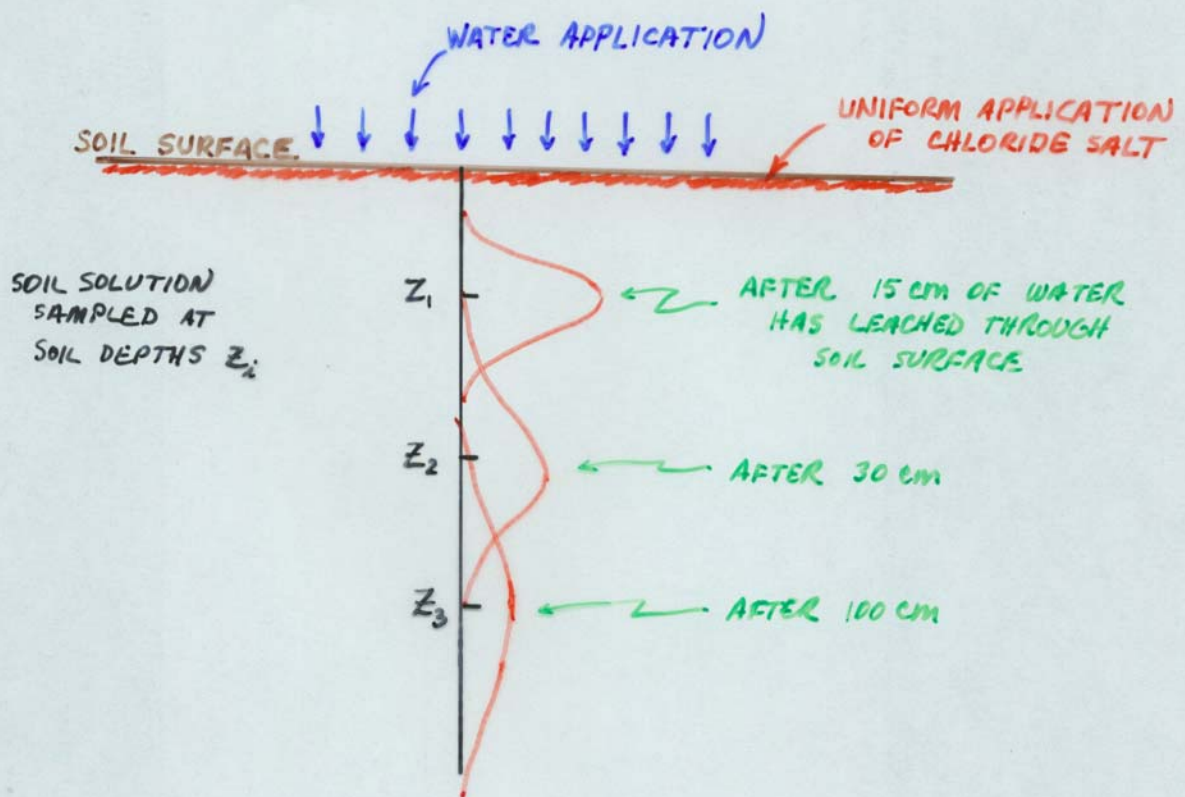 WATER APPLICATION
UNIFORM APPLICATION
OF CHLORIDE SALT
SOIL SURFACE
SOIL SOLUTION
SAMPLED AT
SOIL DEPTHS Zi
Z1
AFTER 15 cm OF WATER
HAS LEACHED THROUGH
SOIL SURFACE
Z2
AFTER 30 cm
Z3
AFTER 100 cm